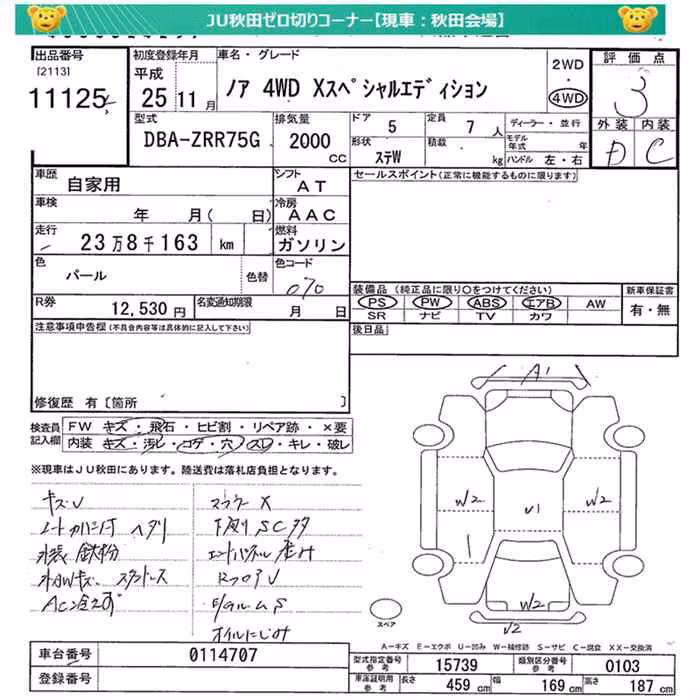 JU秋田ゼロ切りコーナー【現車：秋田会場】
出品番号 初度登録年月 車名・グレード 2WD ・ 4WD 評価点
[2113] 11125 平成 25 11月 ノア 4WD Xスペシャルエディション 3
型式 排気量 ドア 5 定員 7人 ディーラー・並行 外装 内装
DBA-ZRR75G 2000 CC 形状 ステW 積載 kg モデル年式 年 D C
ハンドル 左・右
車歴 自家用 シフト AT セールスポイント(正常に機能するものに限ります)
車検 年 月( 日) 冷房 AAC
走行 23万8千163 km 燃料 ガソリン
色 パール 色替 色コード 070
装備品 (純正品に限り○をつけてください) 新車保証書
R券 12,530円 名変通知期限 月 日 PS PW ABS エアB AW 有・無
SR ナビ TV カワ
注意事項申告欄(不具合内容等は具体的に記入して下さい) 後日品
修復歴 有〔箇所 〕
検査員記入欄 FW キズ・飛石・ヒビ割・リペア跡・×要
内装 キズ・汚レ・コゲ・穴・スレ・キレ・破レ
※現車はJU秋田にあります。陸送費は落札店負担となります。
A1
W2 U1 W2
W2
U2
キズU マフラーX
ヘタリ 下廻りSC多
外装 鉄粉
スタッドレス
オイルにじみ
スペア
A-キズ E-エクボ U-凹み W-補修跡 S-サビ C-腐食 XX-交換済
車台番号 0114707 型式指定番号 参考 15739 類別区分番号 参考 0103
登録番号 車庫証明用 参考 長さ 459 cm 幅 169 cm 高さ 187 cm